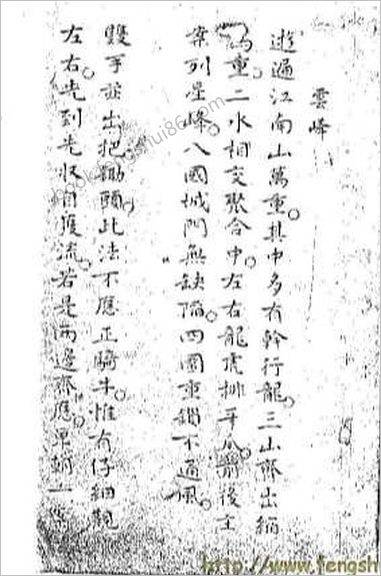 雲峰
遊遍江南山萬重。其中多有幹行龍。三山齊出
重。二水相交聚合中。左右龍虎排牙爪。前後主
案列星峰。八國城門無缺陷。四圍重鎖不通風。
雙手並出把鋤頭此法不應正騎牛。惟有仔細觀
左右。先到先收自獲流。若是兩邊齊應。一
http://www.fengsh